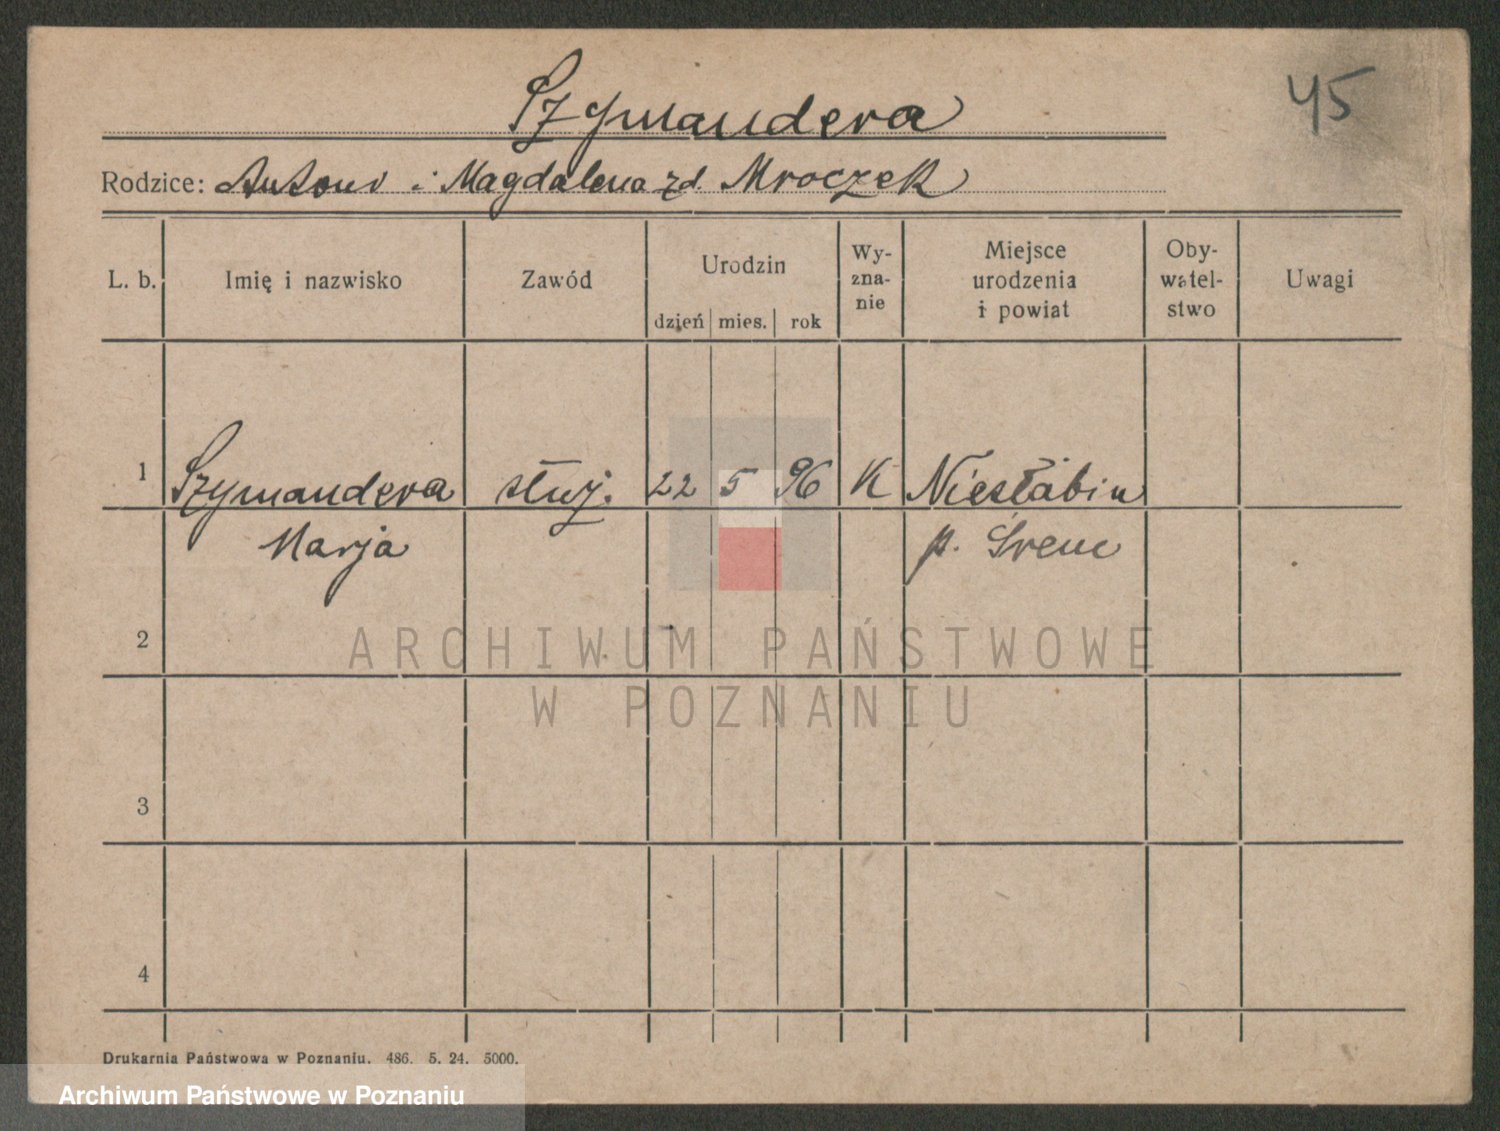 Szymandera
45
Rodzice: Antoni i Magdalena zd. Mroczek
L. b.
Imię i nazwisko
Zawód
Urodzin
dzień mies. rok
Wy-
zna-
nie
Miejsce
urodzenia
i powiat
Oby-
watel-
stwo
Uwagi
1 Szymandera służ. 22 5 96 K Niesłabin
Marja p. Śrem
2
3
4
ARCHIWUM PAŃSTWOWE
W POZNANIU
Drukarnia Państwowa w Poznaniu. 486. 5. 24. 5000.
Archiwum Państwowe w Poznaniu